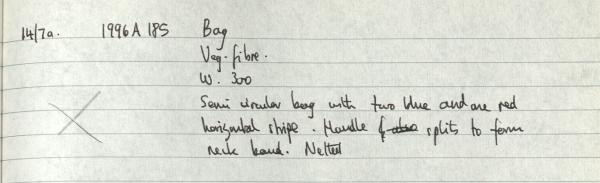 14/7a. 1996 A 185 Bag
Veg. fibre.
W. 300
Semi circular bag with two blue and one red
horizontal stripe. Handle splits to form
neck band. Netted